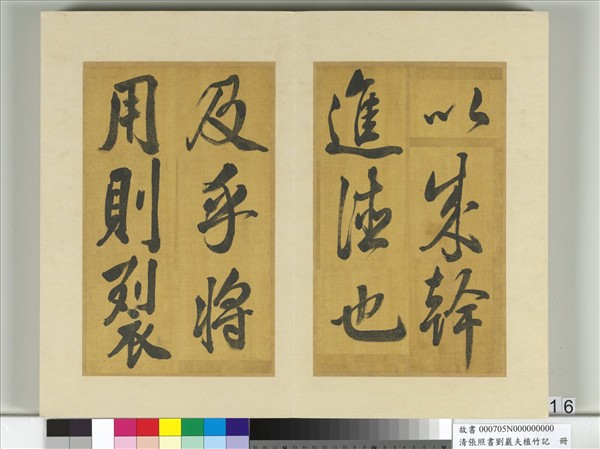 以成幹
進德也
及乎將
用則裂
16
故書 000705N000000000
清張照書劉巖夫植竹記 冊